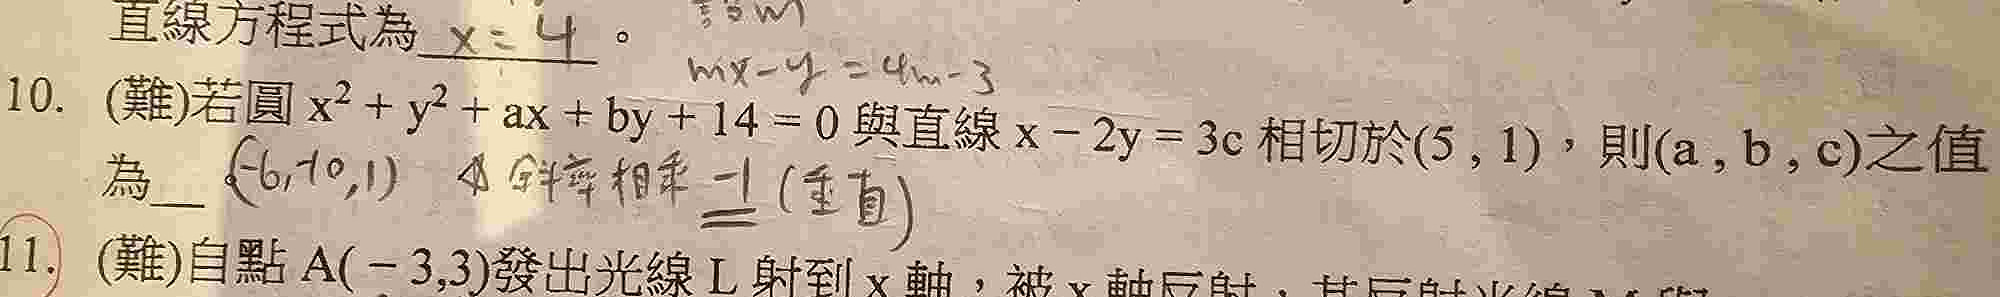 直線方程式為 x=4 。 設m
mx-y=4m-3
10. (難)若圓 x² + y² + ax + by + 14 = 0 與直線 x − 2y = 3c 相切於(5 , 1),則(a , b , c)之值
為 (-6,-10,1) 斜率相乘 -1 (垂直)
11. (難)自點 A( − 3,3)發出光線 L 射到 x 軸,被 x 軸反射,其反射光線 M 與